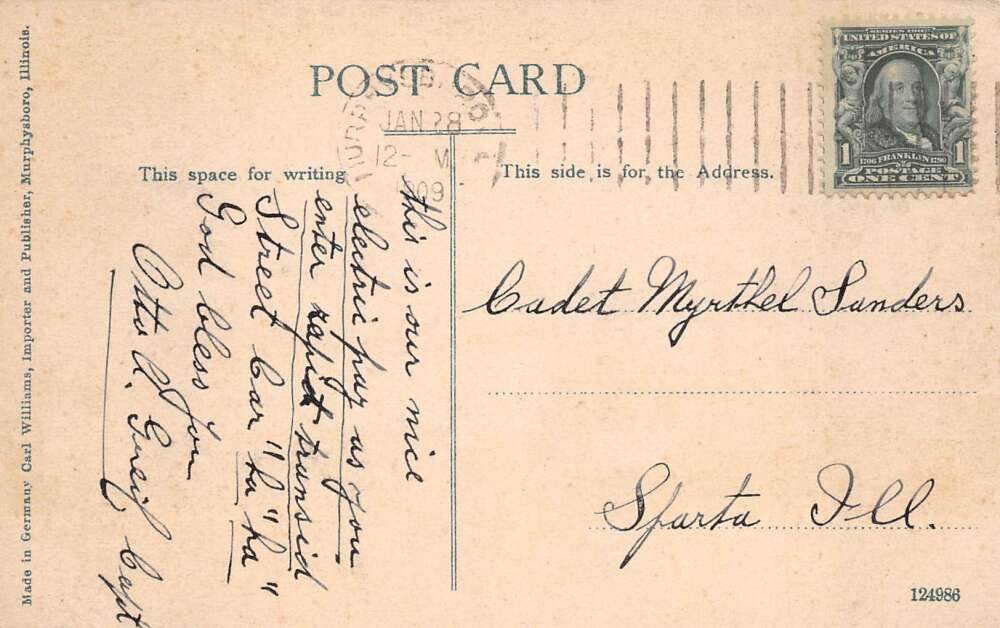 POST CARD
JAN 28
12- M
1909
SERIES 1902
UNITED STATES OF
AMERICA
1706 FRANKLIN 1790
POSTAGE
1 1
ONE CENT
This space for writing
This side is for the Address.
this is our nice
electric pay as you
enter rapid transid
Street Car "ha" ha"
God bless you
Otto A. Capt
Cadet Myrthel Sanders
Sparta Ill.
Made in Germany Carl Williams, Importer and Publisher, Murphysboro, Illinois.
124986